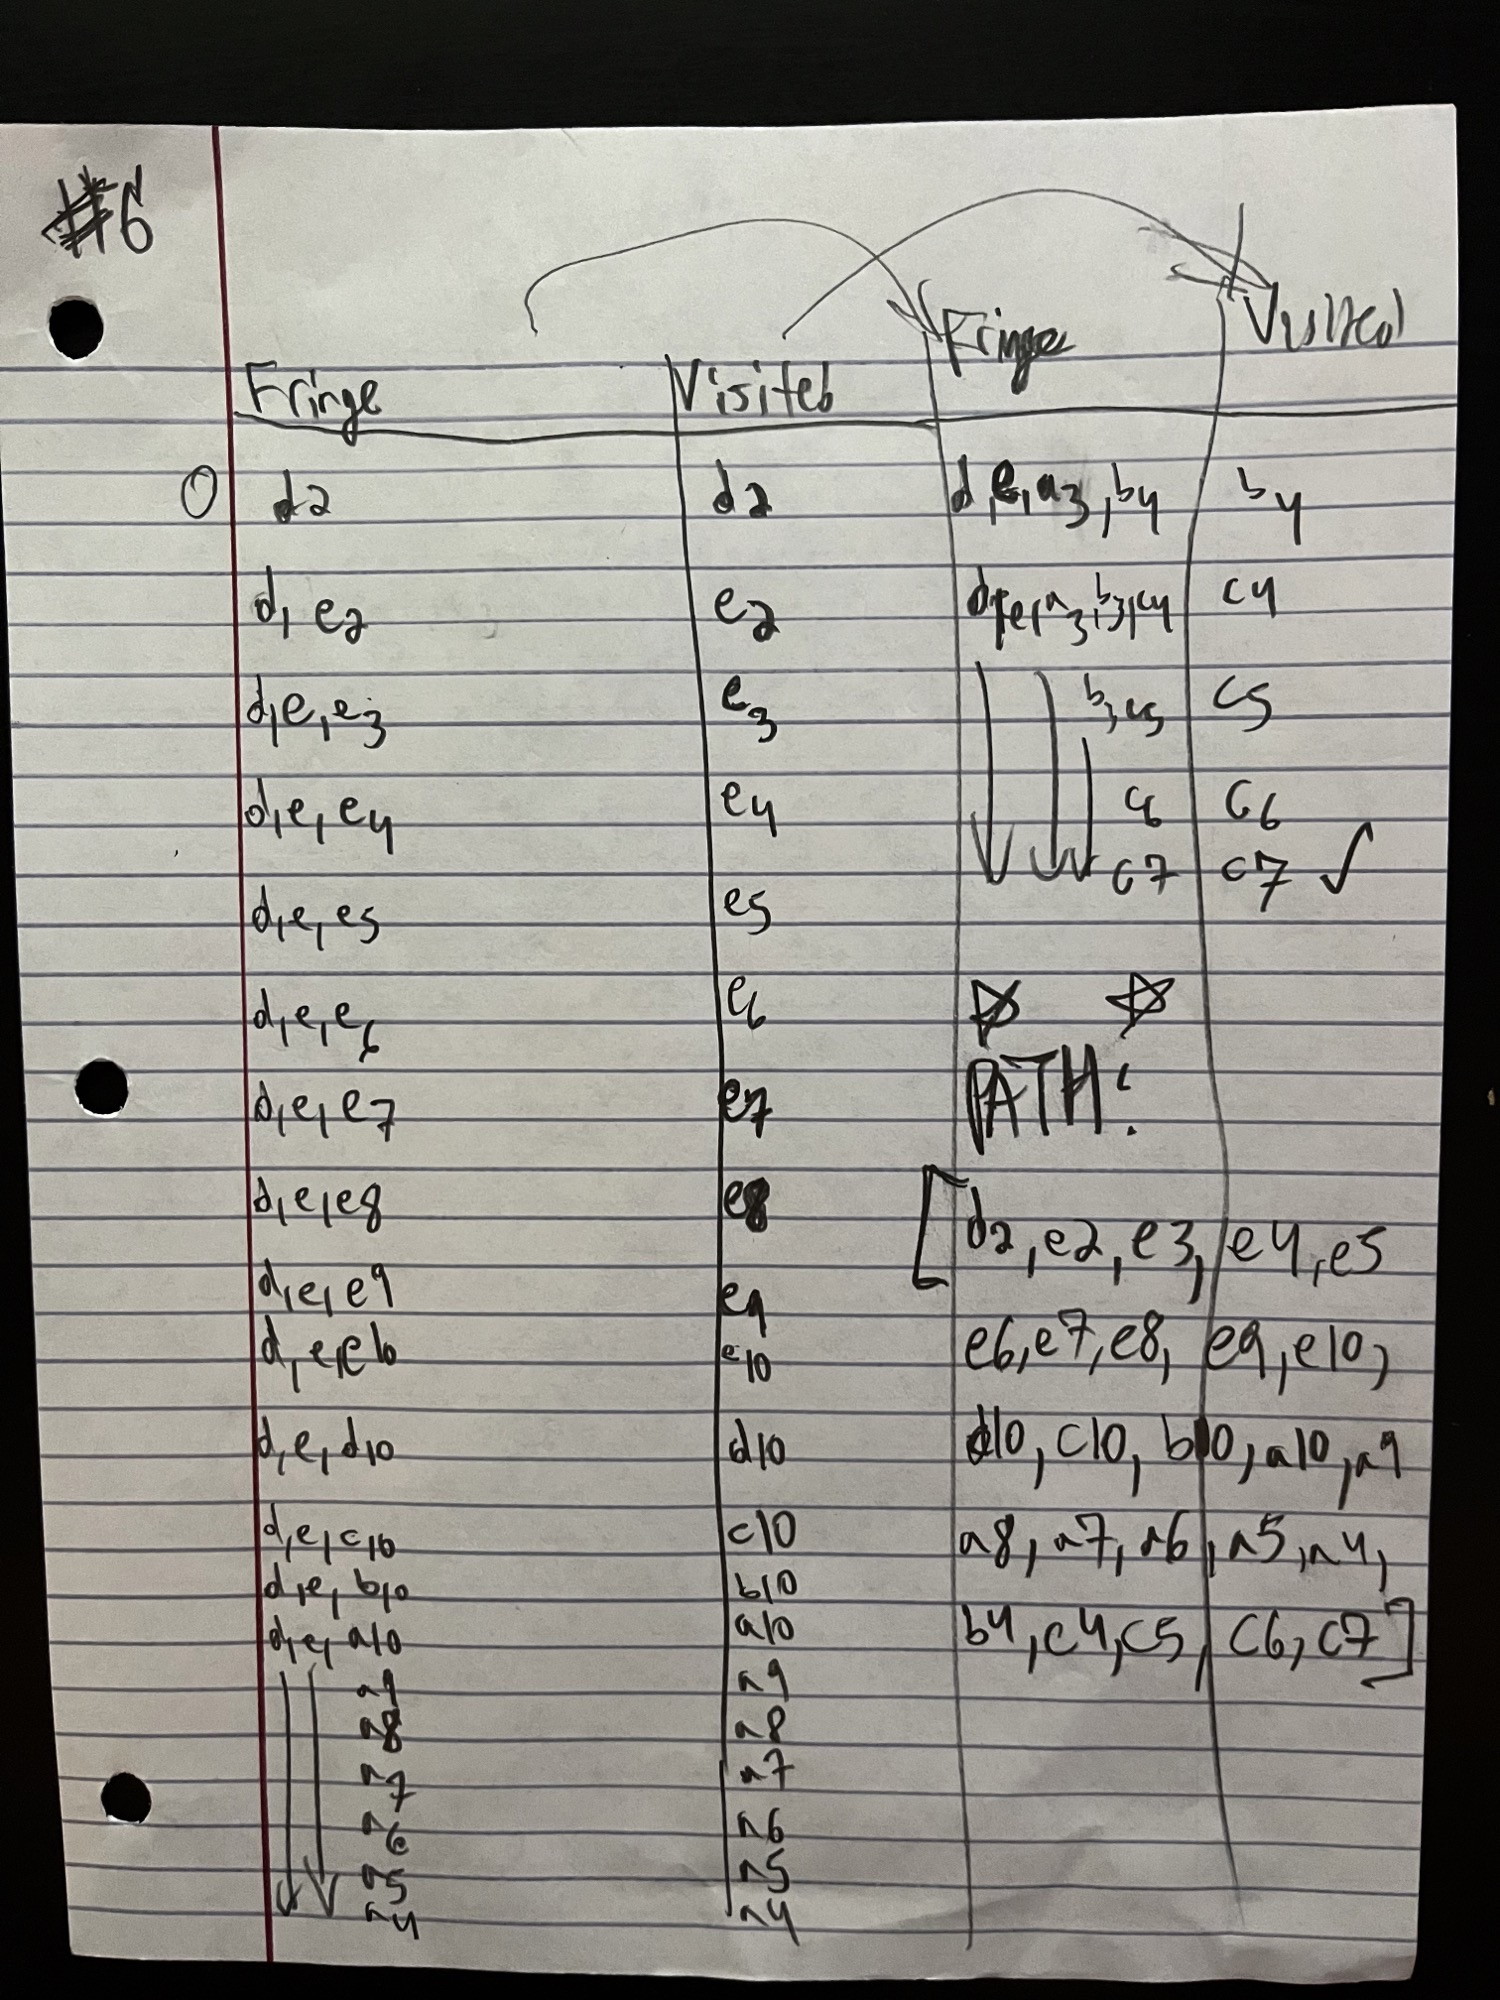 #6
Fringe Visited
0 d2 d2
d, e2 e2
d,e,e3 e3
d,e,e4 e4
d,e,e5 e5
d,e,e6 e6
d,e,e7 e7
d,e,e8 e8
d,e,e9 e9
d,e,e10 e10
d,e,d10 d10
d,e,c10 c10
d,e,b10 b10
d,e,a10 a10
a9 a9
a8 a8
a7 a7
a6 a6
a5 a5
a4 a4
Fringe Visited
d,e,a3,b4 b4
d,e,a3,b3,c4 c4
b3,c5 c5
c6 c6
c7 c7 ✓
PATH:
[d2,e2,e3,e4,e5
e6,e7,e8,e9,e10,
d10,c10,b10,a10,a9
a8,a7,a6,a5,a4,
b4,c4,c5,c6,c7]